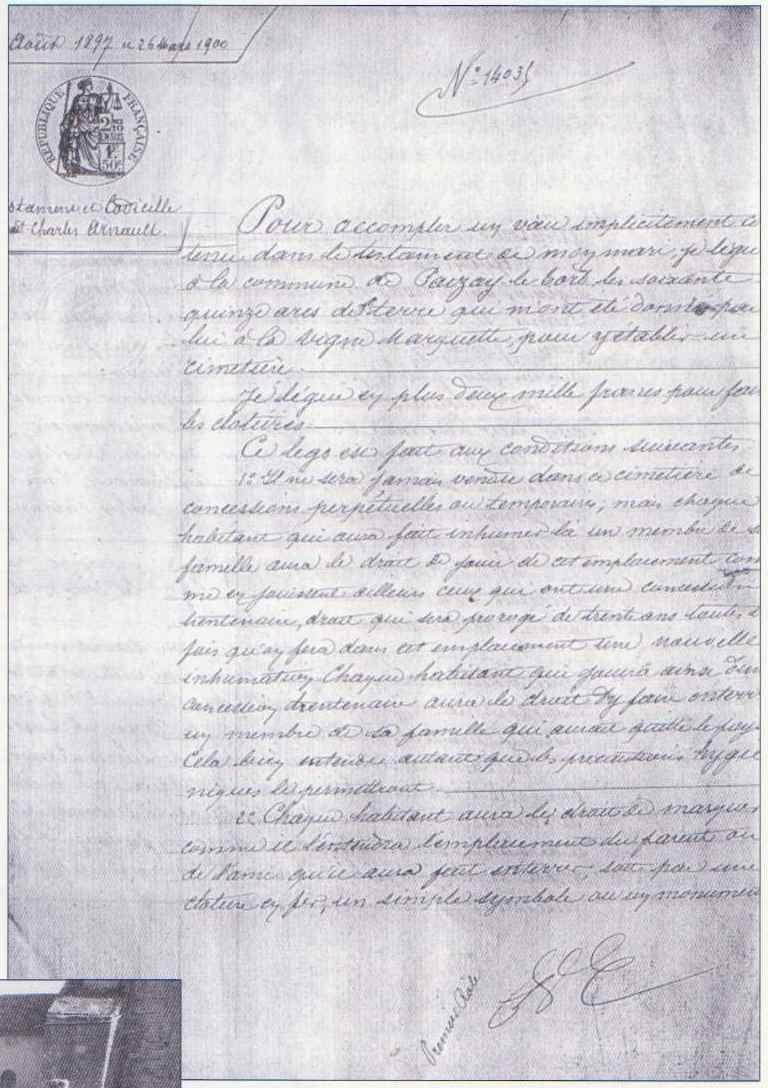 Août 1897 et 26 Mars 1900
N° 14035
RÉPUBLIQUE FRANÇAISE
stament et Codicille
Charles Arnault
Pour accomplir un vœu implicitement co
tenu dans le testament de mon mari, je lègue
à la commune de Paizay le Tort les soixante
quinze ares de terre qui m'ont été donnés par
lui à la Vigne Marquette, pour y établir un
cimetière.
Je lègue en plus deux mille francs pour fai
les clotures.
Ce legs est fait aux conditions suivantes
1° Il ne sera jamais vendu dans ce cimetière de
concessions perpétuelles ou temporaires; mais chaque
habitant qui aura fait inhumer là un membre de s
famille aura le droit de jouir de cet emplacement com
me en jouissent ailleurs ceux qui ont une concession
trentenaire, droit qui sera prorogé de trente ans toutes
fois qu'on fera dans cet emplacement une nouvelle
inhumation. Chaque habitant qui jouira ainsi d'un
concession trentenaire aura le droit d'y faire enterr
un membre de sa famille qui aurait quitté le pay
Cela bien entendu autant que les précautions hygié
niques le permettront.
2° Chaque habitant aura le droit de marquer
comme il l'entendra l'emplacement du parent ou
de l'ami qu'il aura fait enterrer, soit par une
cloture en fer, un simple symbole ou un monument
Premier Rôle